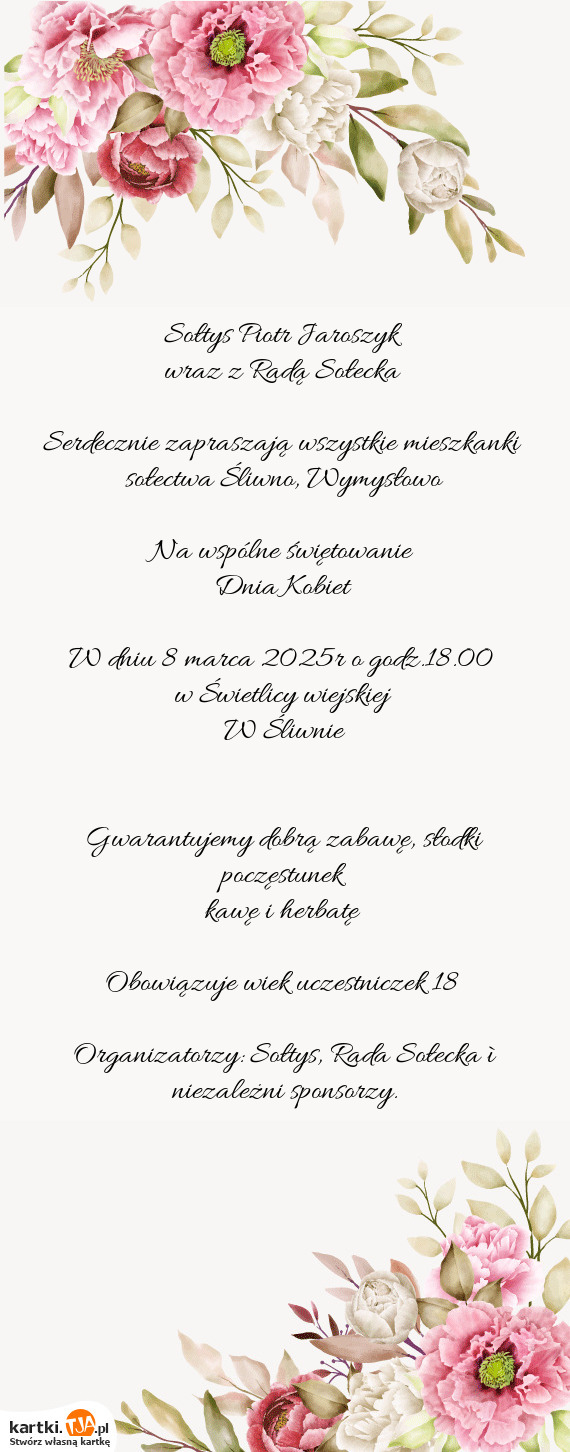 Sołtys Piotr Jaroszyk
wraz z Radą Sołecka
Serdecznie zapraszają wszystkie mieszkanki
sołectwa Śliwno, Wymysłowo
Na wspólne świętowanie
Dnia Kobiet
W dniu 8 marca 2025r o godz.18.00
w Świetlicy wiejskiej
W Śliwnie
Gwarantujemy dobrą zabawę, słodki
poczęstunek
kawę i herbatę
Obowiązuje wiek uczestniczek 18
Organizatorzy: Sołtys, Rada Sołecka ì
niezależni sponsorzy.
kartki.TJA.pl
Stwórz własną kartkę